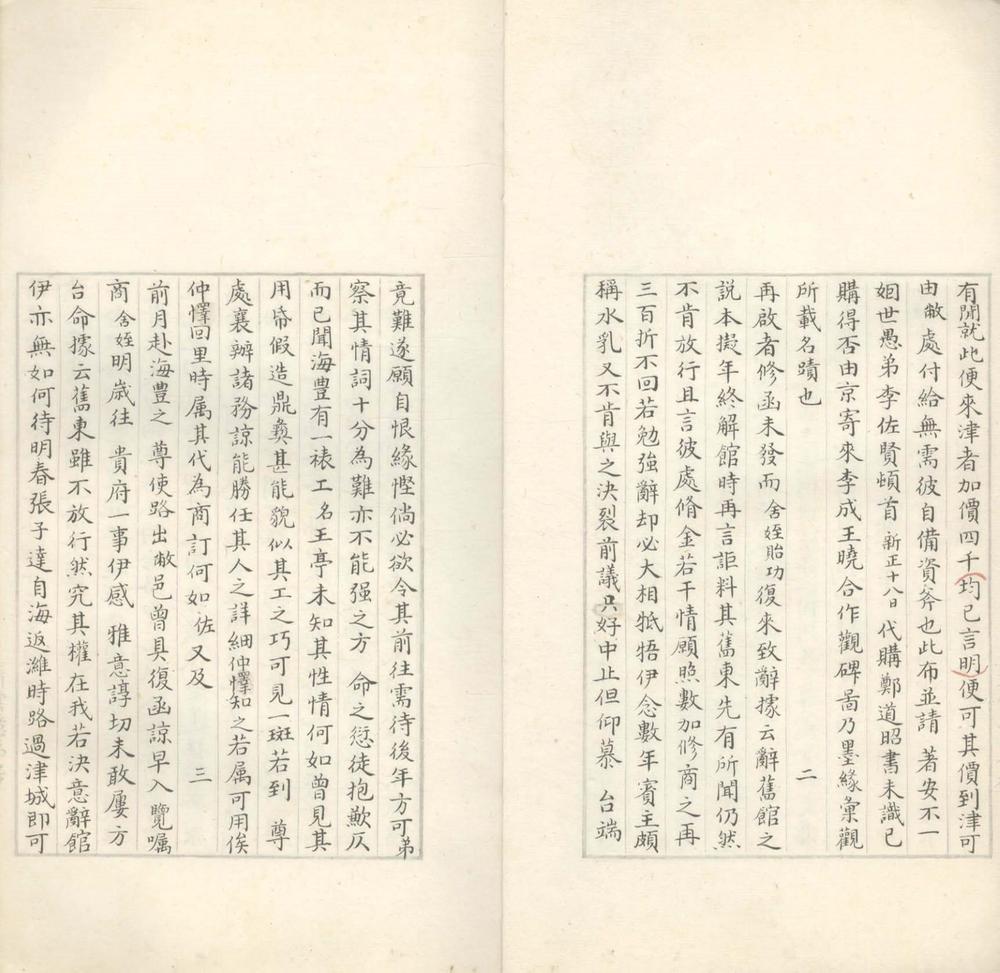 有閒就此便來津者加價四千均已言明便可其價到津可
由敝處付給無需彼自備資斧也此布並請 著安不一
姻世愚弟李佐賢頓首 新正十八日 代購鄭道昭書未識已
購得否由京寄來李成王曉合作觀碑啚乃墨緣彙觀
所載名蹟也 二
再啟者修函未發而舍姪貽功復來致辭據云辭舊館之
說本擬年終解館時再言詎料其舊東先有所聞仍然
不肯放行且言彼處脩金若干情願照數加修商之再
三百折不回若勉強辭却必大相牴牾伊念數年賓主頗
稱水乳又不肯與之決裂前議只好中止但仰慕 台端
竟難遂願自恨緣慳倘必欲令其前往需待後年方可弟
察其情詞十分為難亦不能强之方 命之愆徒抱歉仄
而已聞海豊有一裱工名王亭未知其性情何如曾見其
用帋假造鼎彝甚能貌似其工之巧可見一斑若到 尊
處襄辦諸務諒能勝任其人之詳細仲懌知之若属可用俟
仲懌回里時属其代為商訂何如 佐又及 三
前月赴海豊之 尊使路出敝邑曾具復函諒早入覽嘱
商舍姪明歳往 貴府一事伊感 雅意諄切未敢屢方
台命據云舊東雖不放行然究其權在我若決意辭館
伊亦無如何待明春張子達自海返濰時路過津城即可